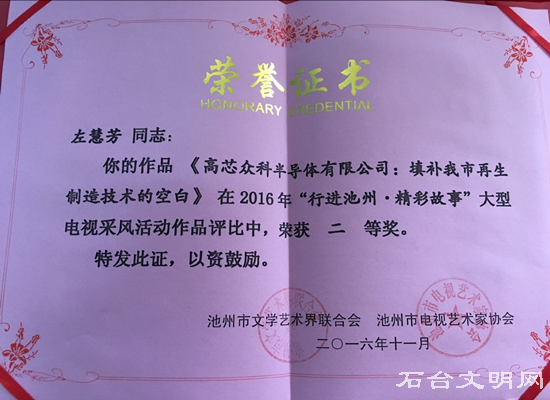 荣誉证书
HONORARY CREDENTIAL
左慧芳 同志：
你的作品《高芯众科半导体有限公司：填补我市再生
制造技术的空白》在2016年“行进池州·精彩故事”大型
电视采风活动作品评比中，荣获 二 等奖。
特发此证，以资鼓励。
池州市文学艺术界联合会 池州市电视艺术家协会
二〇一六年十一月
石台文明网